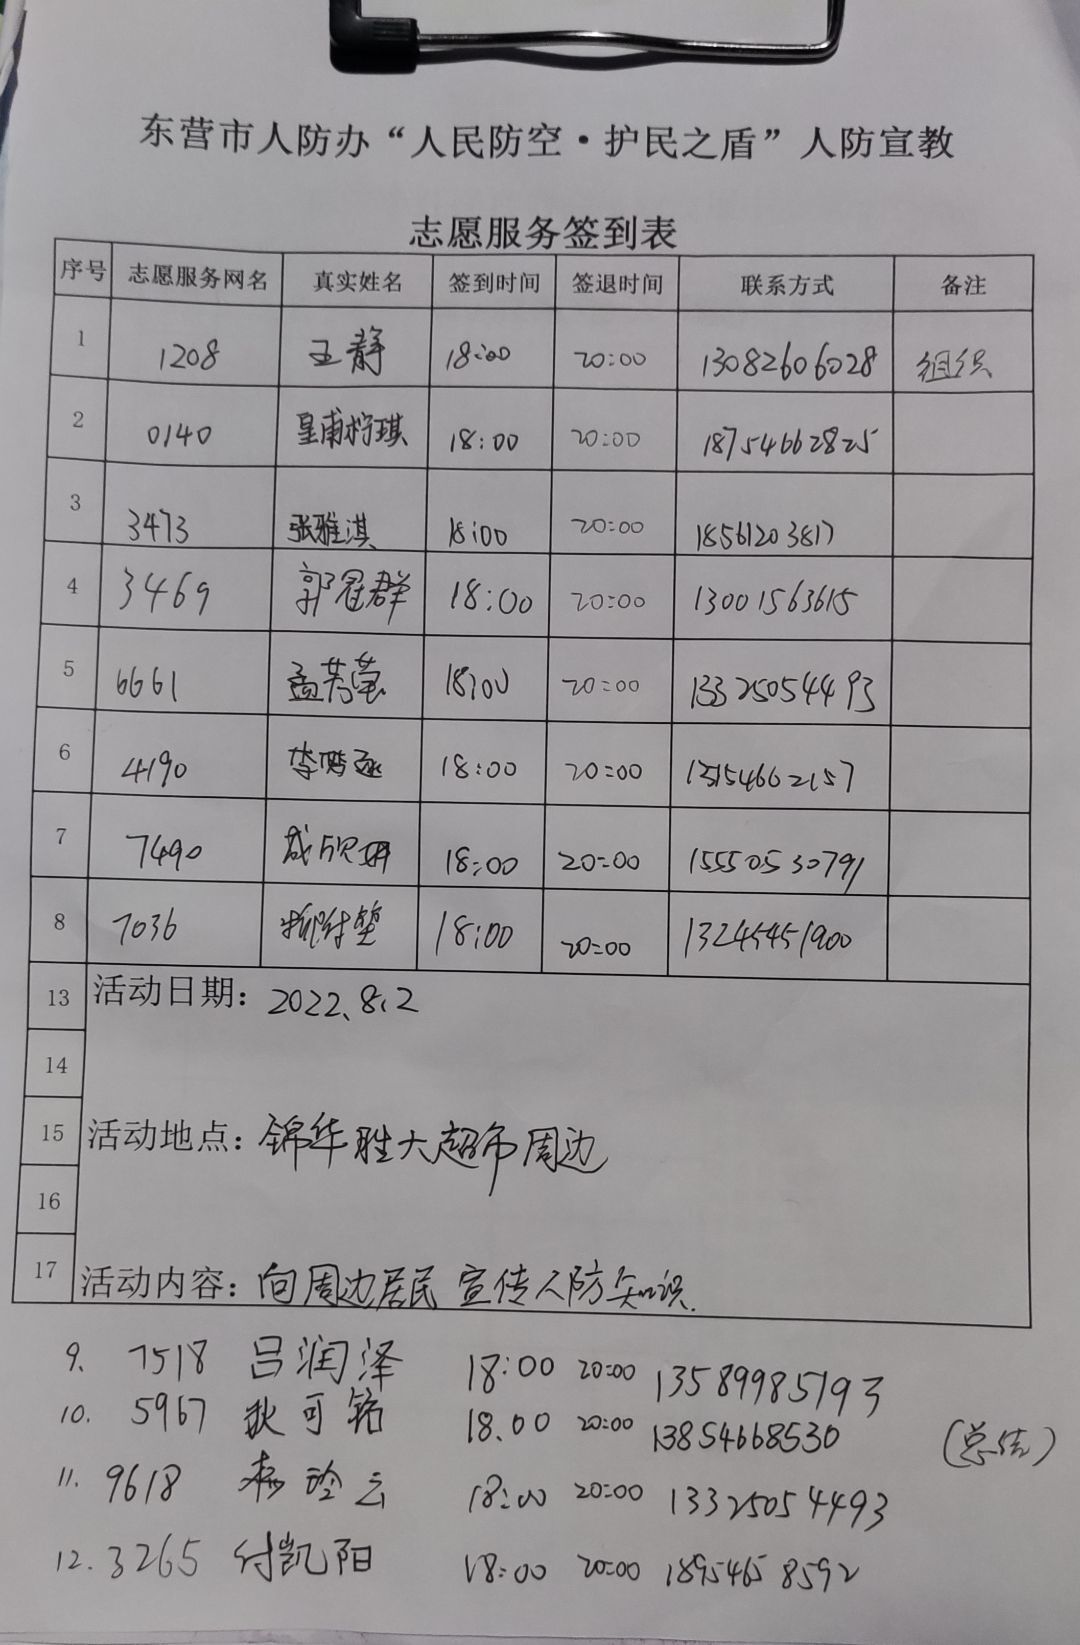 东营市人防办“人民防空·护民之盾”人防宣教
志愿服务签到表
序号 志愿服务网名 真实姓名 签到时间 签退时间 联系方式 备注
1 1208 王静 18:00 20:00 13082606028 组织
2 0140 皇甫柠琪 18:00 20:00 18754662825
3 3473 张雅淇 18:00 20:00 18561203817
4 3469 郭冠群 18:00 20:00 13001563615
5 6661 孟芳莹 18:00 20:00 13325054493
6 4190 李 18:00 20:00 13154662157
7 7490 成欣妍 18:00 20:00 15550530791
8 7036 18:00 20:00 13245451900
13 活动日期: 2022、8、2
14
15 活动地点: 锦华胜大超市周边
16
17 活动内容: 向周边居民宣传人防知识.
9. 7518 吕润泽 18:00 20:00 13589985193
10. 5967 狄可铭 18.00 20:00 13854668530 (总结)
11. 9618 云 18:00 20:00 13325054493
12. 3265 付凯阳 18:00 20:00 18954658592